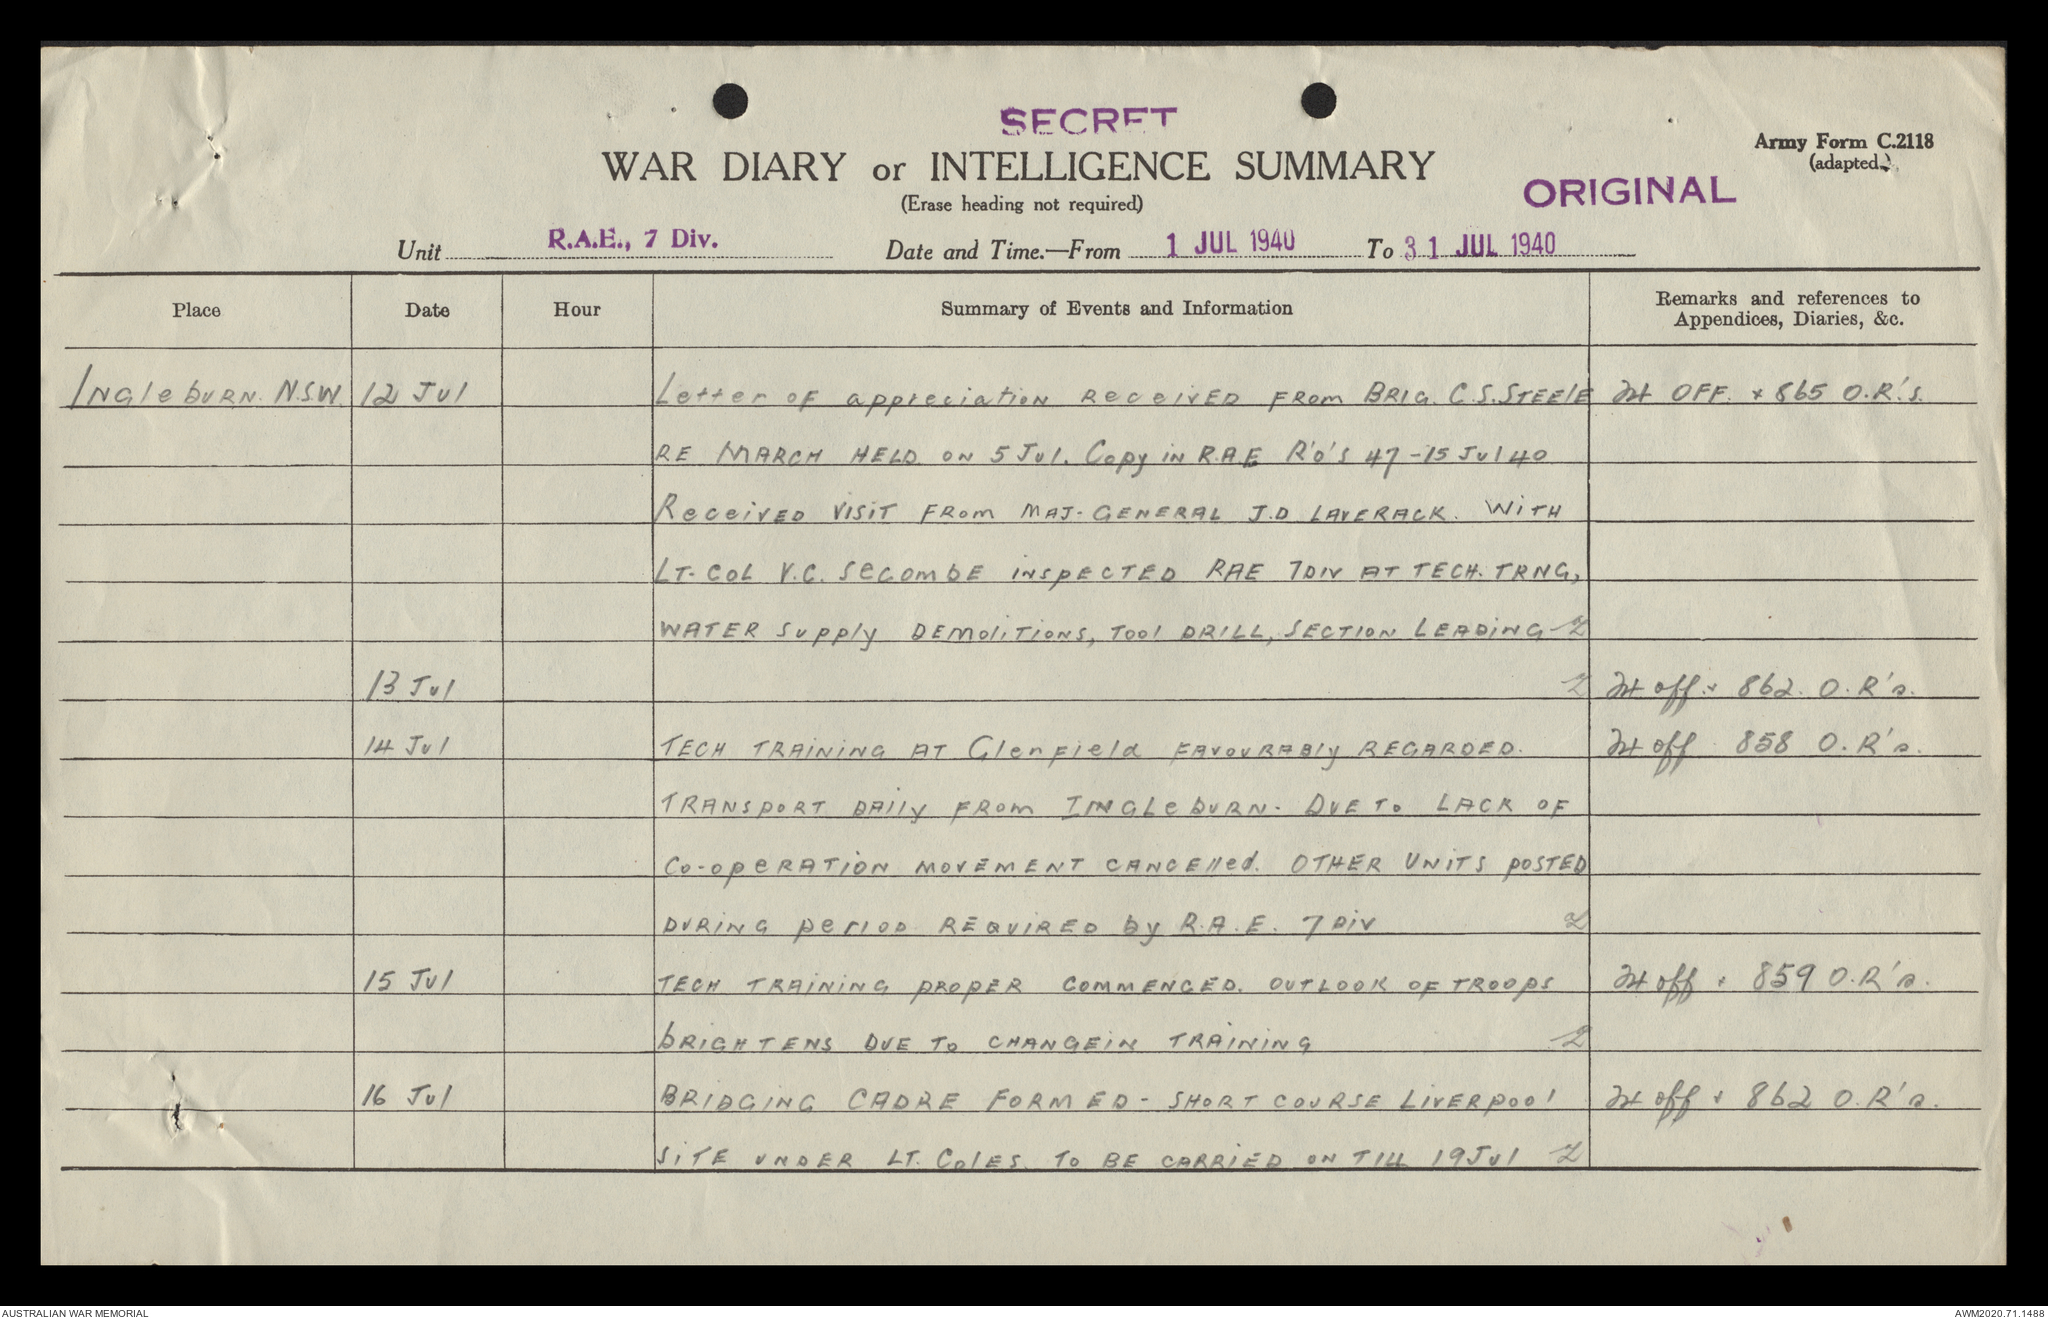 SECRET
Army Form C.2118
(adapted.)
WAR DIARY or INTELLIGENCE SUMMARY
(Erase heading not required)
ORIGINAL
Unit R.A.E., 7 Div. Date and Time.—From 1 JUL 1940 To 31 JUL 1940
Place Date Hour Summary of Events and Information Remarks and references to
Appendices, Diaries, &c.
Ingleburn. N.S.W. 12 Jul Letter of appreciation received from Brig. C.S. Steele OFF. + 865 O.R's.
re march held on 5 Jul. Copy in R.A.E R'O'S 47-15 Jul 40
Received visit from Maj-General J.D Laverack. With
Lt-Col V.C. Secombe inspected RAE 7 Div at Tech. Trng,
Water supply Demolitions, Tool Drill, Section Leading
13 Jul off + 862. O.R's.
14 Jul Tech training at Glenfield favourably regarded. off 858 O.R's.
Transport daily from Ingleburn. Due to lack of
co-operation movement cancelled. Other units posted
during period required by R.A.E. 7 Div
15 Jul Tech training proper commenced. Outlook of troops off + 859 O.R's.
brightens due to changein training
16 Jul Bridging cadre formed - short course Liverpool off + 862 O.R's.
site under Lt. Coles. To be carried on till 19 Jul
AUSTRALIAN WAR MEMORIAL AWM2020.71.1488